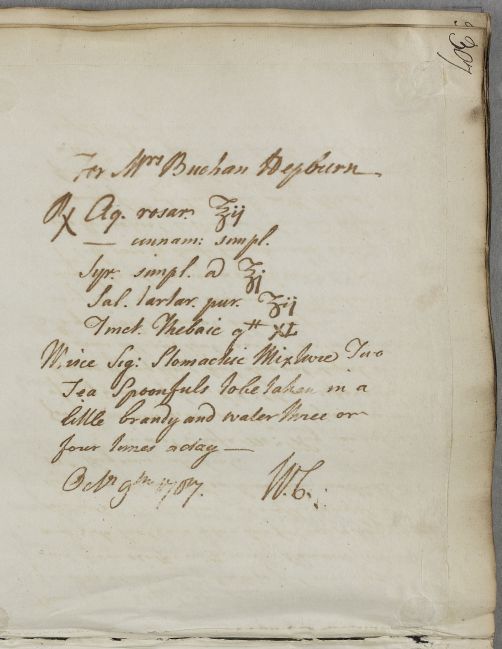 307
For Mrs Buchan Hepburn
℞ Aq. rosar. ℥ij
— cinnam: simpl.
Syr. simpl. a ℥j
Sal. tartar. pur. ʒij
Tinct. Thebaic gtt XL
Misce Sig: Stomachic Mixture Two
Tea Spoonfuls to be taken in a
little brandy and water three or
four times a day —
Octr 9th 1787. W. C.